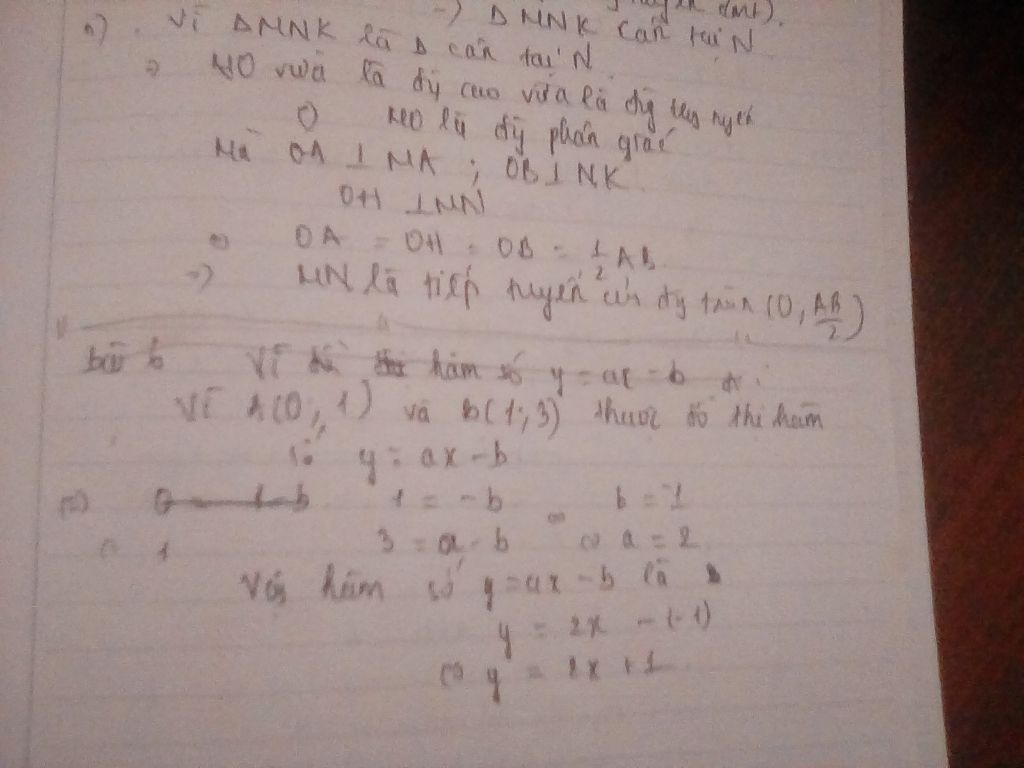 -) Δ MNK cân tại N
Vì Δ MNK là Δ cân tại N
=> NO vừa là đg cao vừa là đg
NO là đg phân giác
Mà OA ⊥ MA ; OB ⊥ NK
OH ⊥ MN
OA = OH = OB = 1/2 AB
=) MN là tiếp tuyến của đg tròn (O, AB/2)
bài 6 Vì hàm số y = ax - b
Vì A(0; 1) và B(1; 3) thuộc đồ thị hàm
số y = ax - b
1 = -b b = -1
3 = a - b a = 2
Vậy hàm số y = ax - b là
y = 2x - (-1)
y = 2x + 1